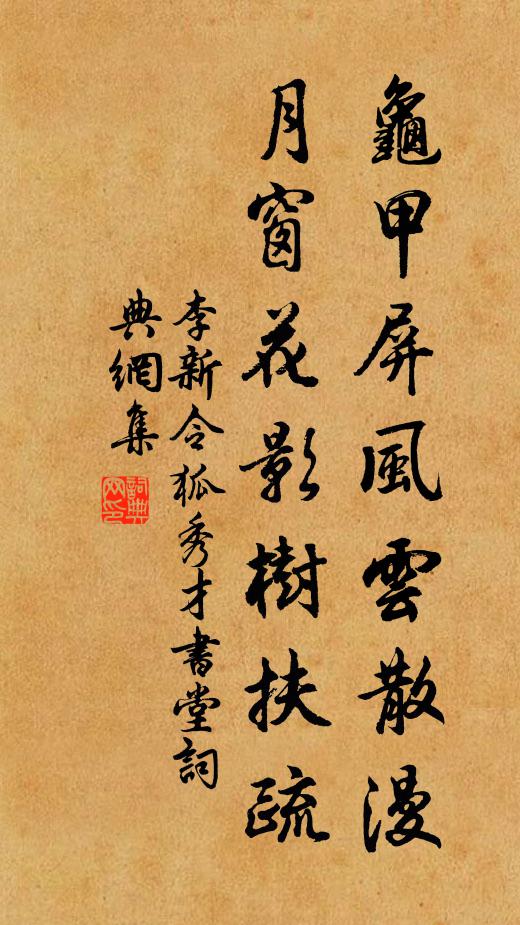 龜甲屏風雲散漫
月窗花影樹扶疏
李新令狐秀才書堂詞
典網集
詞典網印